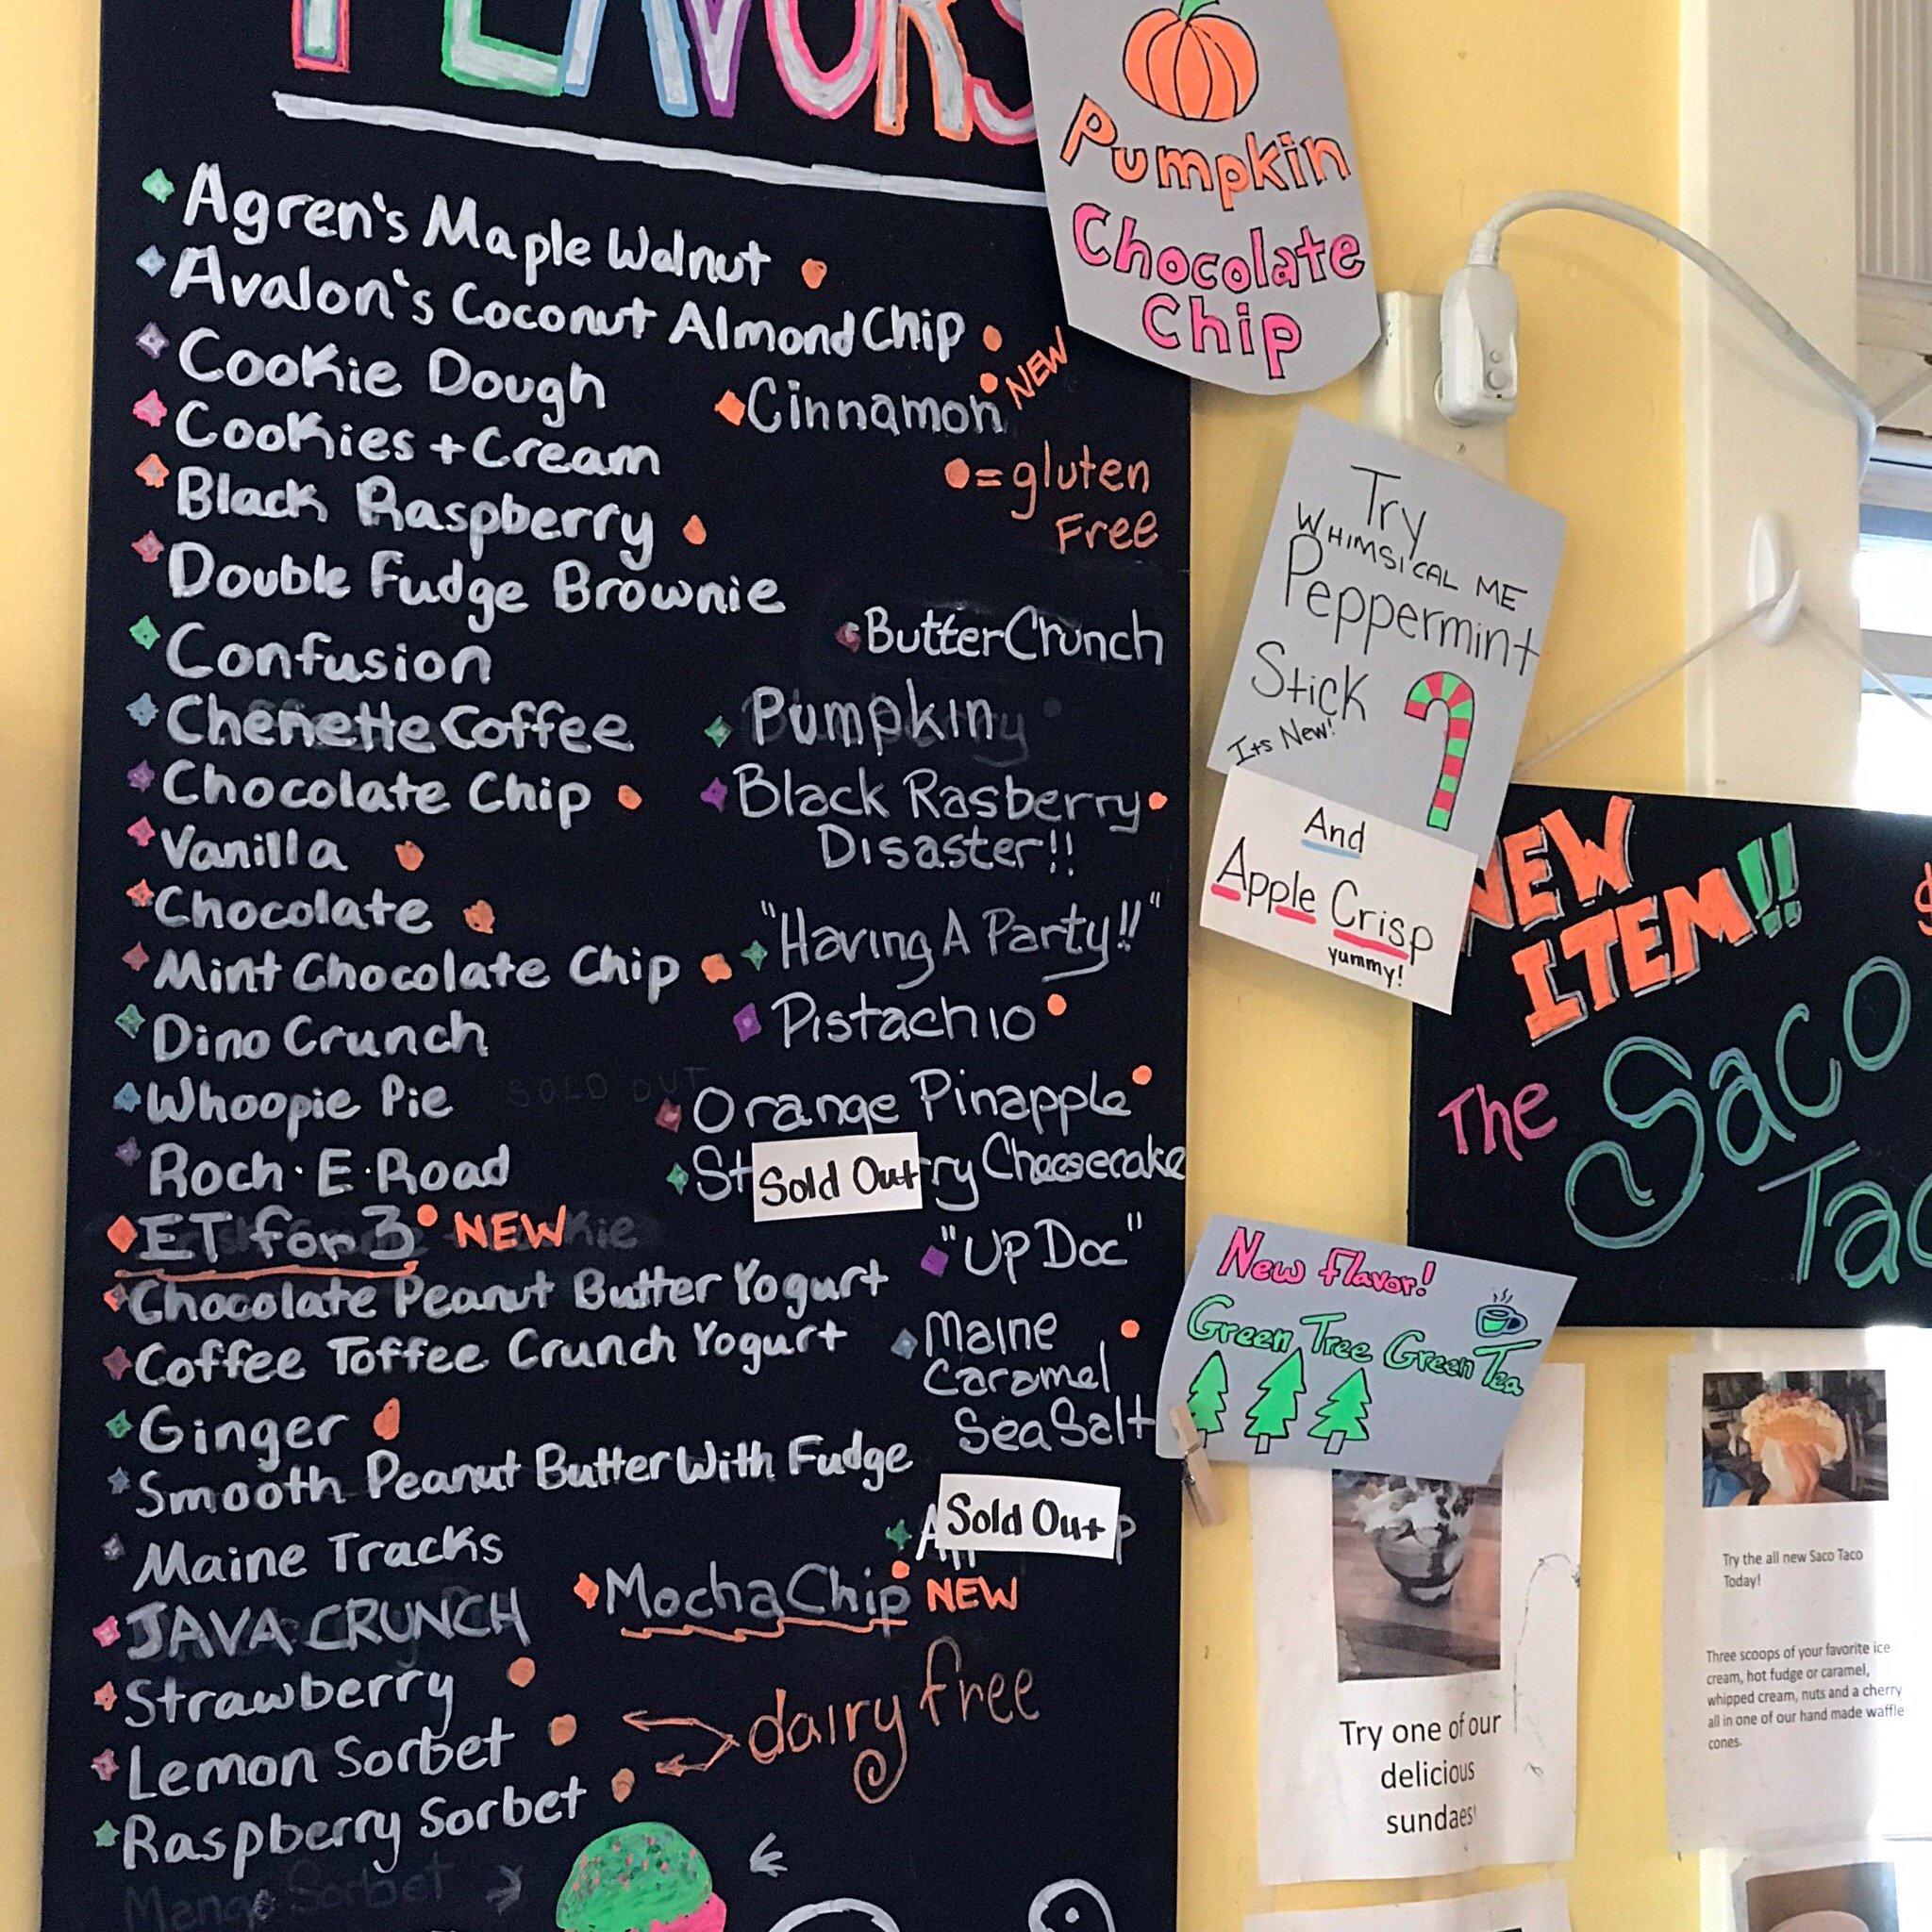 FLAVORS
Agren's Maple Walnut
Avalon's Coconut Almond Chip
Cookie Dough
Cookies + Cream
Black Raspberry
Double Fudge Brownie
Confusion
Chenette Coffee
Chocolate Chip
Vanilla
Chocolate
Mint Chocolate Chip
Dino Crunch
Whoopie Pie
SOLD OUT
Roch·E·Road
ET for 3 NEW
Chocolate Peanut Butter Yogurt
Coffee Toffee Crunch Yogurt
Ginger
Smooth Peanut Butter With Fudge
Maine Tracks
JAVA CRUNCH
Strawberry
Lemon Sorbet
Raspberry Sorbet
Mango Sorbet
dairy free
Cinnamon NEW
= gluten
Free
Butter Crunch
Pumpkin
Black Rasberry
Disaster!!
"Having A Party!!"
Pistachio
Orange Pinapple
Sold Out
Cheesecake
"Up Doc"
Maine
Caramel
Sea Salt
Sold Out
Mocha Chip NEW
Pumpkin
Chocolate
Chip
Try
WHIMSICAL ME
Peppermint
Stick
Its New!
And
Apple Crisp
yummy!
NEW
ITEM!!
The Saco
New Flavor!
Green Tree Green Tea
Try one of our
delicious
sundaes!
Try the all new Saco Taco
Today!
Three scoops of your favorite ice
cream, hot fudge or caramel,
whipped cream, nuts and a cherry
all in one of our hand made waffle
cones.